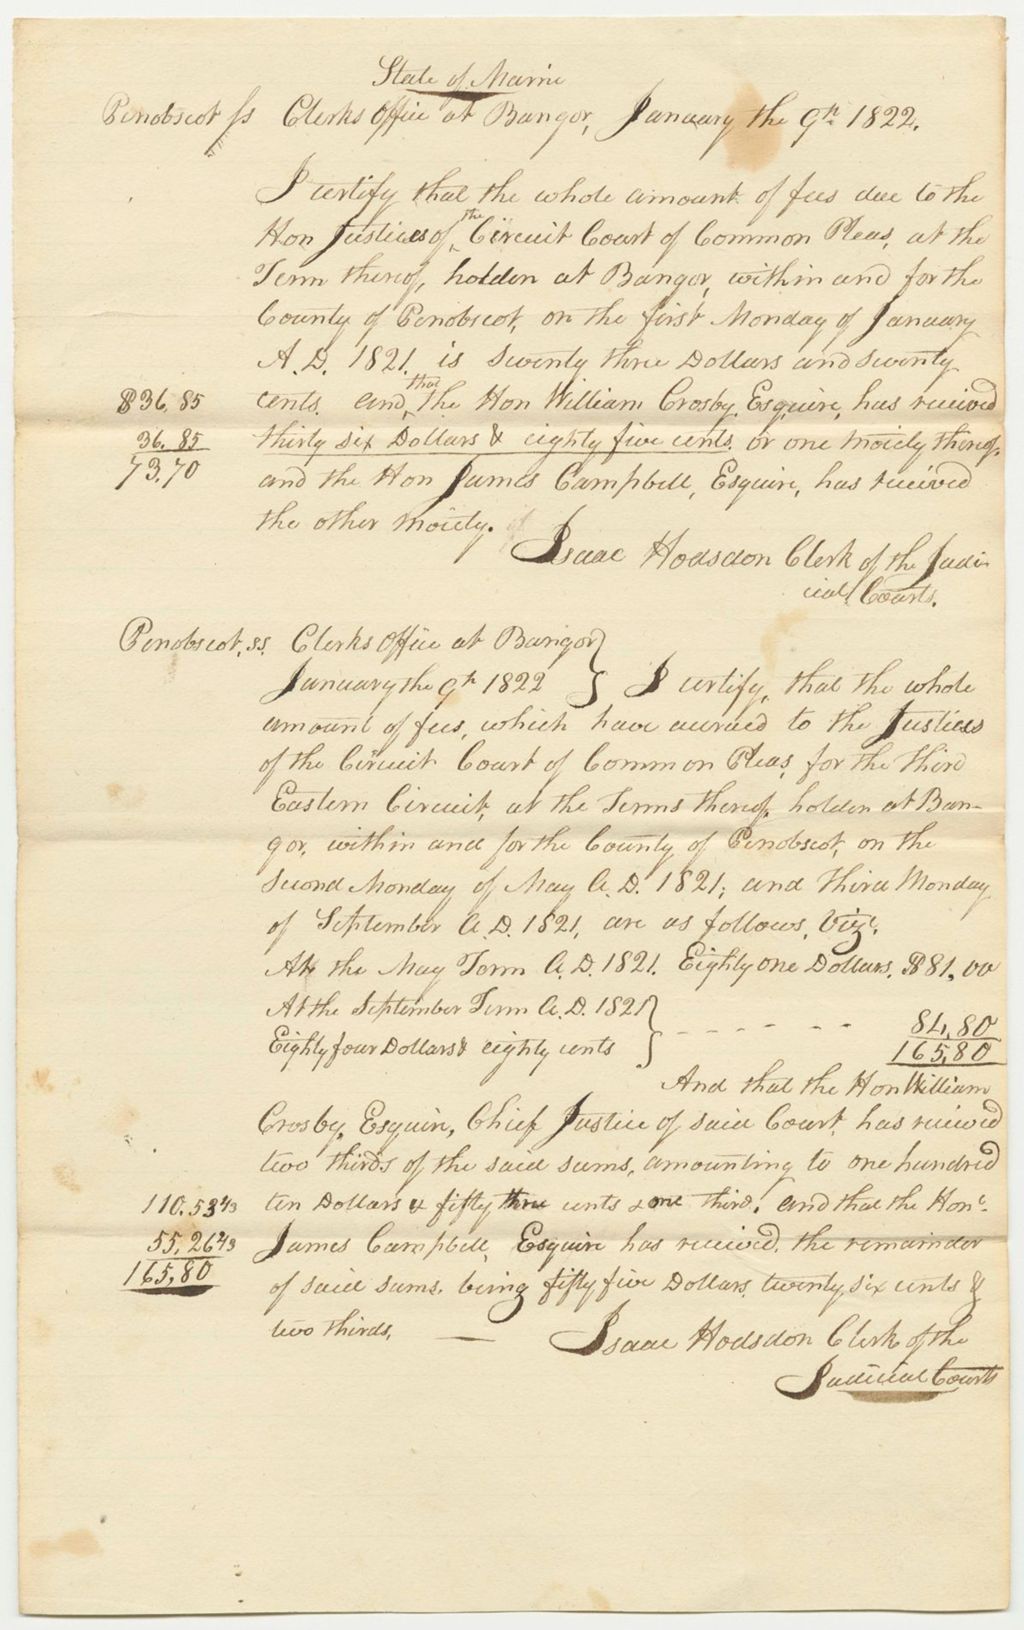 State of Maine
Penobscot ss Clerks Office at Bangor, January the 9th 1822.
I certify that the whole amount of fees due to the
Hon Justices of the Circuit Court of Common Pleas, at the
Term thereof, holden at Bangor, within and for the
County of Penobscot, on the first Monday of January
A.D. 1821. is seventy three Dollars and seventy
$36,85 cents. and that the Hon William Crosby, Esquire, has received
36,85 thirty six Dollars & eighty five cents. or one moiety thereof,
73,70 and the Hon James Campbell, Esquire, has received
the other moiety.
Isaac Hodsdon Clerk of the Judi-
cial Courts.
Penobscot, ss. Clerks Office at Bangor
January the 9th 1822 } I certify, that the whole
amount of fees, which have accrued to the Justices
of the Circuit Court of Common Pleas, for the third
Eastern Circuit, at the Terms thereof, holden at Ban-
gor, within and for the County of Penobscot, on the
Second Monday of May A.D. 1821; and third Monday
of September A.D. 1821, are as follows, Vizt.
At the May Term A.D. 1821. Eighty one Dollars. $81,00
At the September Term A.D. 1821
Eighty four Dollars & eighty cents } - - - - - - 84,80
165,80
And that the Hon William
Crosby, Esquire, Chief Justice of said Court, has received
two thirds of the said sums, amounting to one hundred
110.53 1/3 ten Dollars & fifty three cents & one third. and that the Honl.
55,26 2/3 James Campbell, Esquire has received, the remainder
165,80 of said sums, being fifty five Dollars, twenty six cents &
two thirds. —
Isaac Hodsdon Clerk of the
Judicial Courts